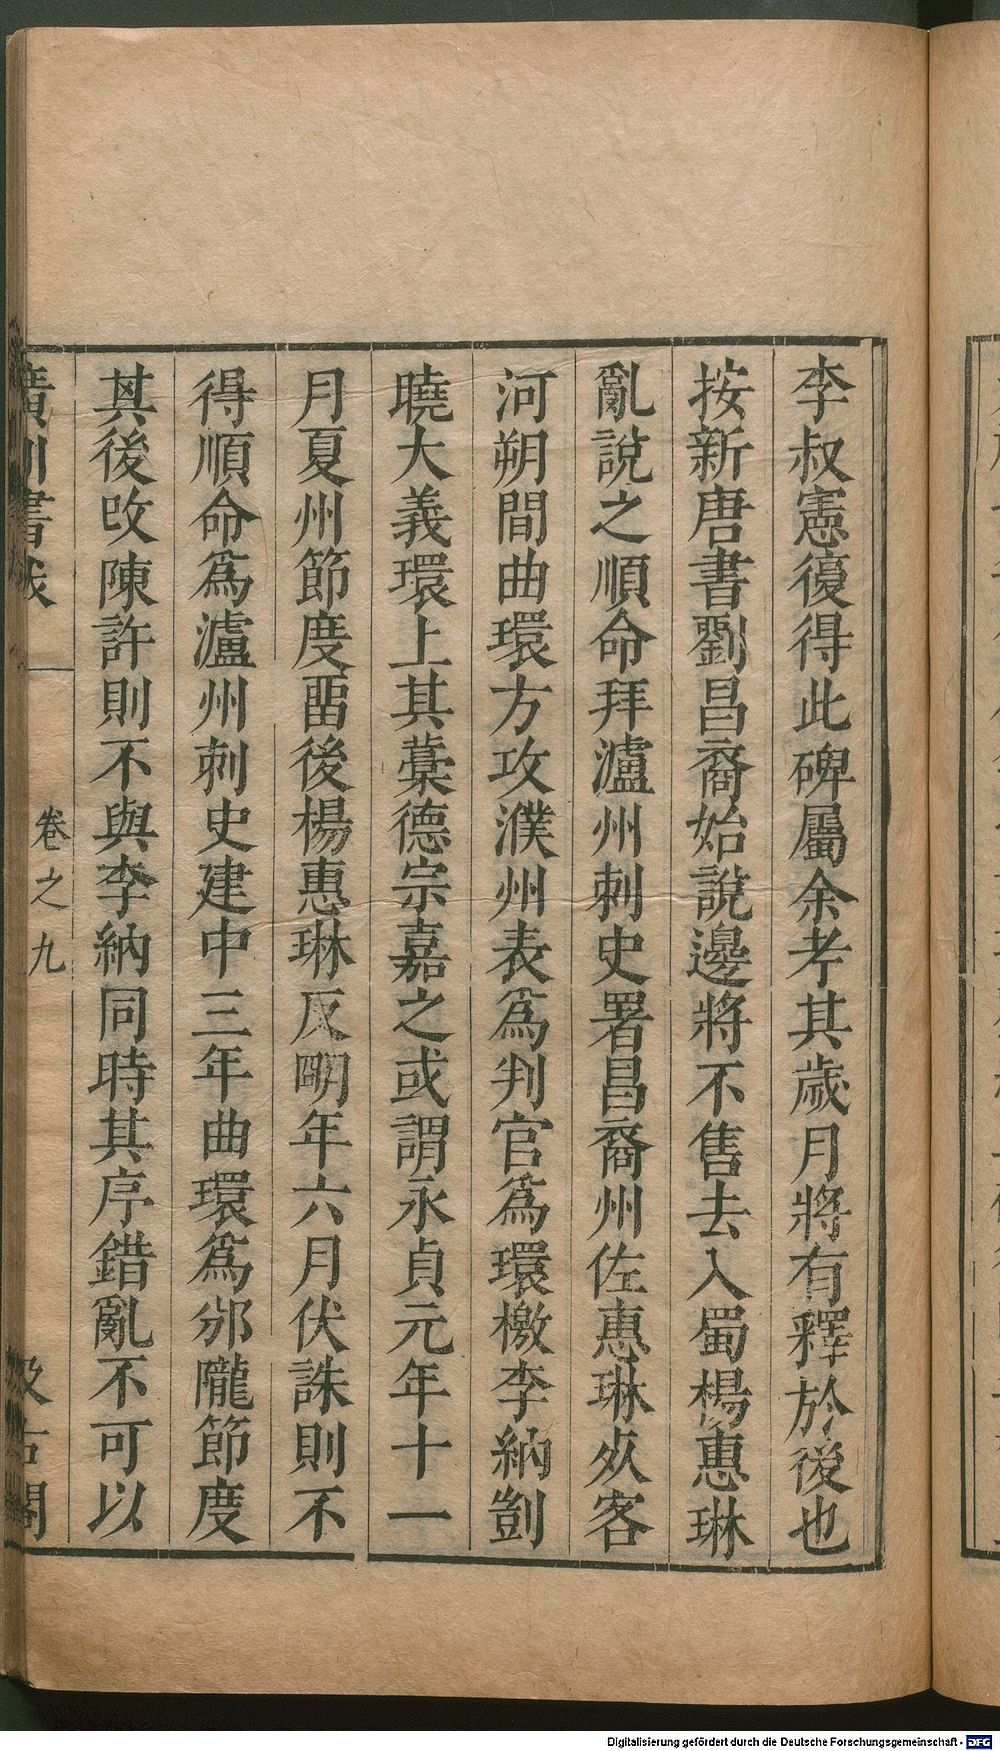 李叔憲復得此碑屬余考其歲月將有釋於後也
按新唐書劉昌裔始說邊將不售去入蜀楊惠琳
亂說之順命拜瀘州刺史署昌裔州佐惠琳死客
河朔間曲環方攻濮州表爲判官爲環檄李納剴
曉大義環上其藁德宗嘉之或謂永貞元年十一
月夏州節度畱後楊惠琳反明年六月伏誅則不
得順命爲瀘州刺史建中三年曲環爲邠隴節度
其後改陳許則不與李納同時其序錯亂不可以
廣川書跋
卷之九
汲古閣
Digitalisierung gefördert durch die Deutsche Forschungsgemeinschaft - DFG